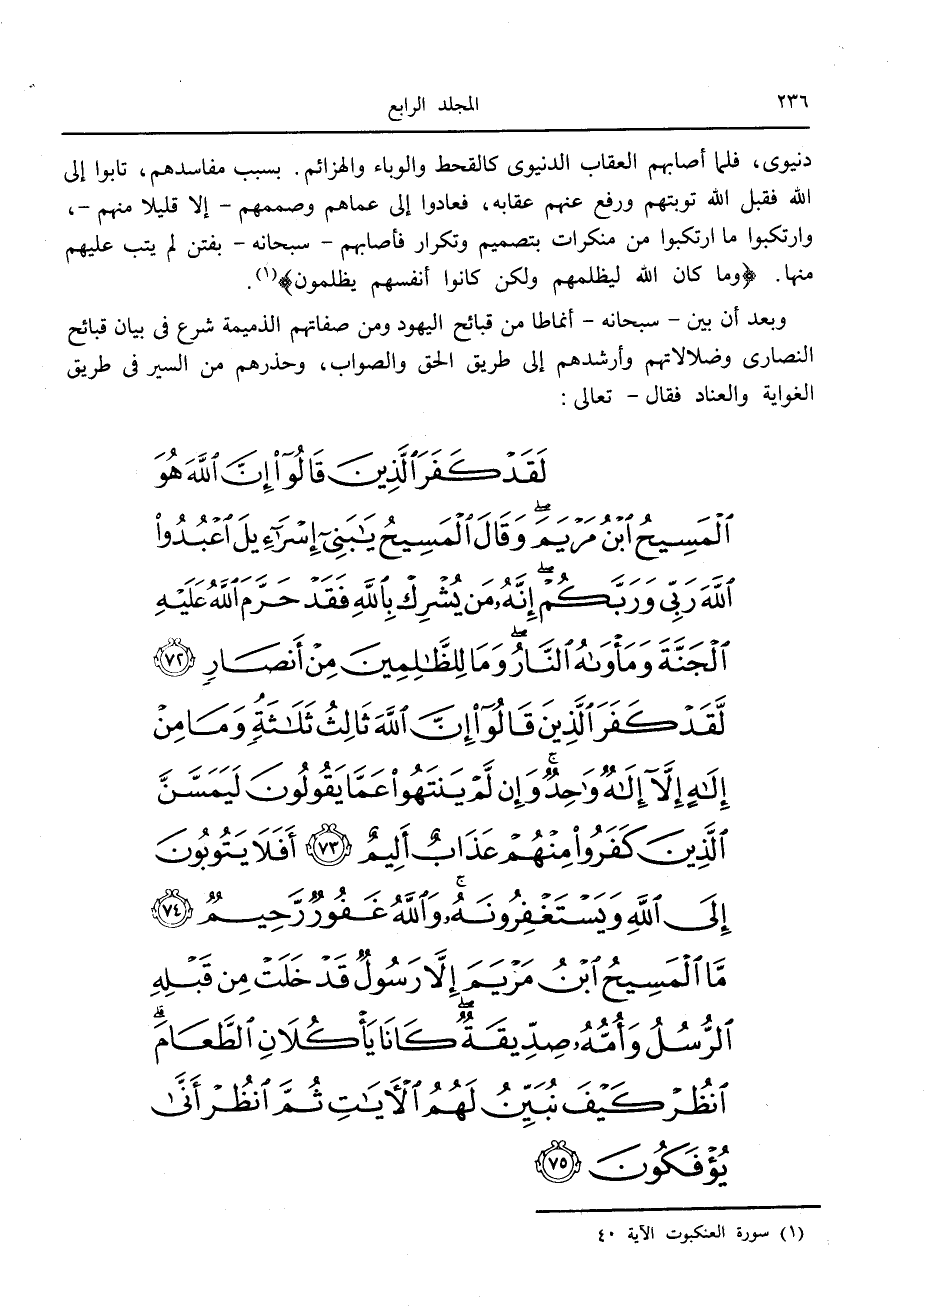 ٢٣٦
المجلد الرابع
دنيوى، فلما أصابهم العقاب الدنيوى كالقحط والوباء والهزائم. بسبب مفاسدهم، تابوا إلى
الله فقبل الله توبتهم ورفع عنهم عقابه، فعادوا إلى عماهم وصممهم – إلا قليلا منهم –،
وارتكبوا ما ارتكبوا من منكرات بتصميم وتكرار فأصابهم – سبحانه – بفتن لم يتب عليهم
منها. ﴿وما كان الله ليظلمهم ولكن كانوا أنفسهم يظلمون﴾(١).
وبعد أن بين – سبحانه – أنماطا من قبائح اليهود ومن صفاتهم الذميمة شرع فى بيان قبائح
النصارى وضلالاتهم وأرشدهم إلى طريق الحق والصواب، وحذرهم من السير فى طريق
الغواية والعناد فقال – تعالى :
لَقَدْ كَفَرَ ٱلَّذِينَ قَالُوٓا۟ إِنَّ ٱللَّهَ هُوَ
ٱلْمَسِيحُ ٱبْنُ مَرْيَمَ ۖ وَقَالَ ٱلْمَسِيحُ يَٰبَنِىٓ إِسْرَٰٓءِيلَ ٱعْبُدُوا۟
ٱللَّهَ رَبِّى وَرَبَّكُمْ ۖ إِنَّهُۥ مَن يُشْرِكْ بِٱللَّهِ فَقَدْ حَرَّمَ ٱللَّهُ عَلَيْهِ
ٱلْجَنَّةَ وَمَأْوَىٰهُ ٱلنَّارُ ۖ وَمَا لِلظَّٰلِمِينَ مِنْ أَنصَارٍ ٧٢
لَّقَدْ كَفَرَ ٱلَّذِينَ قَالُوٓا۟ إِنَّ ٱللَّهَ ثَالِثُ ثَلَٰثَةٍ وَمَا مِنْ
إِلَٰهٍ إِلَّآ إِلَٰهٌ وَٰحِدٌ ۚ وَإِن لَّمْ يَنتَهُوا۟ عَمَّا يَقُولُونَ لَيَمَسَّنَّ
ٱلَّذِينَ كَفَرُوا۟ مِنْهُمْ عَذَابٌ أَلِيمٌ ٧٣ أَفَلَا يَتُوبُونَ
إِلَى ٱللَّهِ وَيَسْتَغْفِرُونَهُۥ ۚ وَٱللَّهُ غَفُورٌ رَّحِيمٌ ٧٤
مَّا ٱلْمَسِيحُ ٱبْنُ مَرْيَمَ إِلَّا رَسُولٌ قَدْ خَلَتْ مِن قَبْلِهِ
ٱلرُّسُلُ وَأُمُّهُۥ صِدِّيقَةٌ ۖ كَانَا يَأْكُلَانِ ٱلطَّعَامَ ۗ
ٱنظُرْ كَيْفَ نُبَيِّنُ لَهُمُ ٱلْءَايَٰتِ ثُمَّ ٱنظُرْ أَنَّىٰ
يُؤْفَكُونَ ٧٥
(١) سورة العنكبوت الآية ٤٠